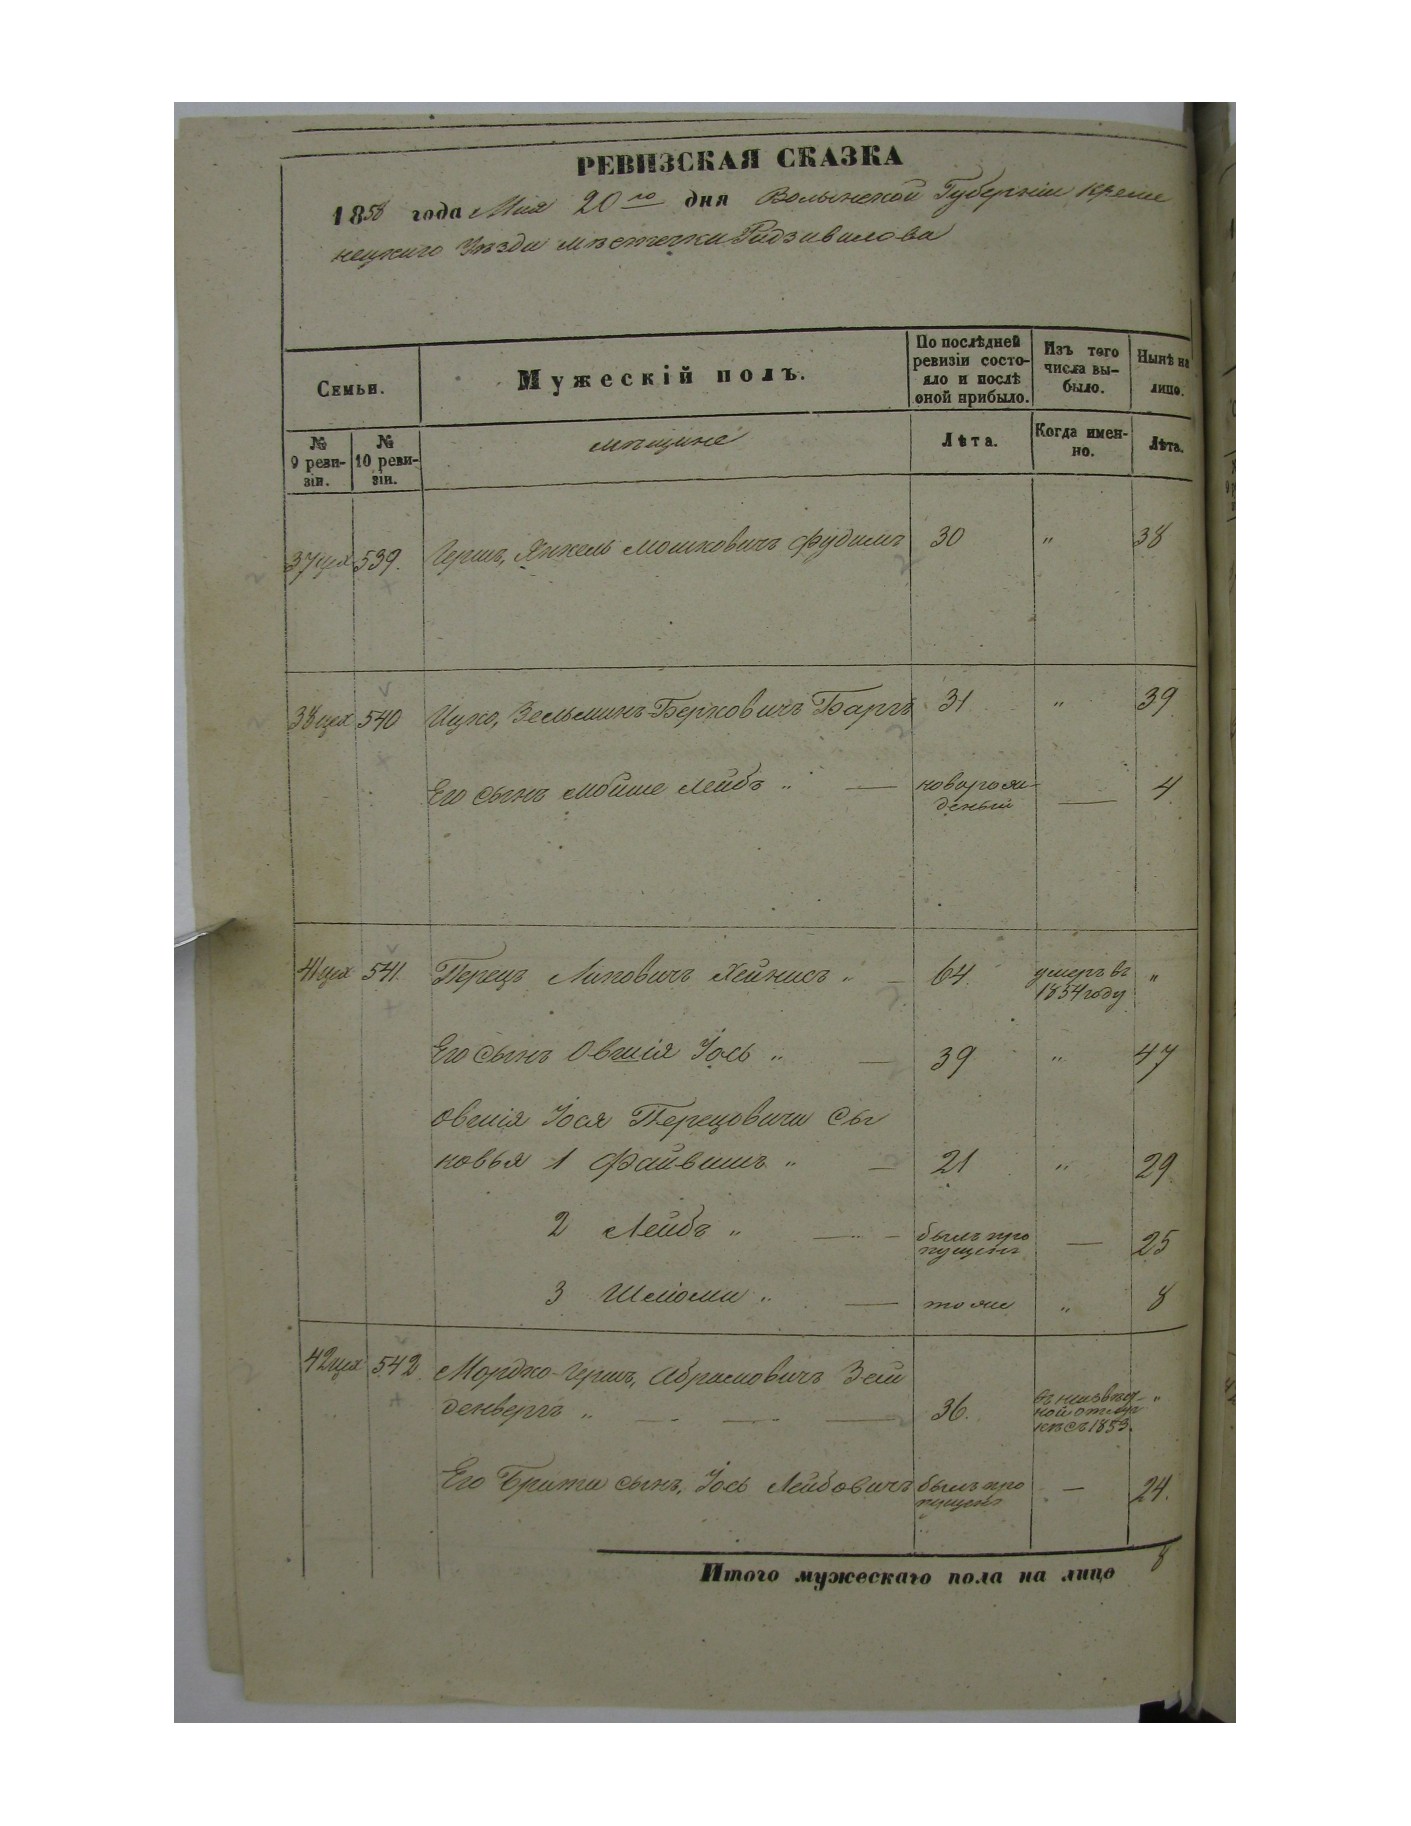 РЕВИЗСКАЯ СКАЗКА
1858 года Мая 20го дня Волынской Губерніи Креме
нецкаго Уѣзда мѣстечка Радзивилова
Семьи.
Мужескій полъ.
По послѣдней ревизіи состояло и послѣ оной прибыло.
Изъ того числа выбыло.
Нынѣ на лицо.
№ 9 ревизіи.
№ 10 ревизіи.
мѣщане
Лѣта.
Когда именно.
Лѣта.
37 цех 539. Герш, Янкель Мошковичъ Фудимъ 30 " 38
38 цех 540 Ицко, Зельманъ Берковичъ Баргъ 31 " 39
Его сынъ Мойше Лейбъ " — новорож-
деный — 4
41 цех 541. Перецъ Ликовичъ Хейнисъ " — 64. умеръ въ "
1854 году
Его сынъ Овшія Іось " — 39 " 47
Овшія Іося Перецовича Сы
новья 1 Файвишъ " — 21 " 29
2 Лейбъ " — былъ про
пущенъ — 25
3 Шліома " — тоже " 8
42 цех 542. Мордко-Герш, Абрамовичъ Зей
денбергъ " — 36. въ неизвѣст "
ной отлуч
кѣ съ 1853.
Его Брата сынъ, Іось Лейбовичъ былъ про — 24.
пущенъ
Итого мужескаго пола на лицо 8